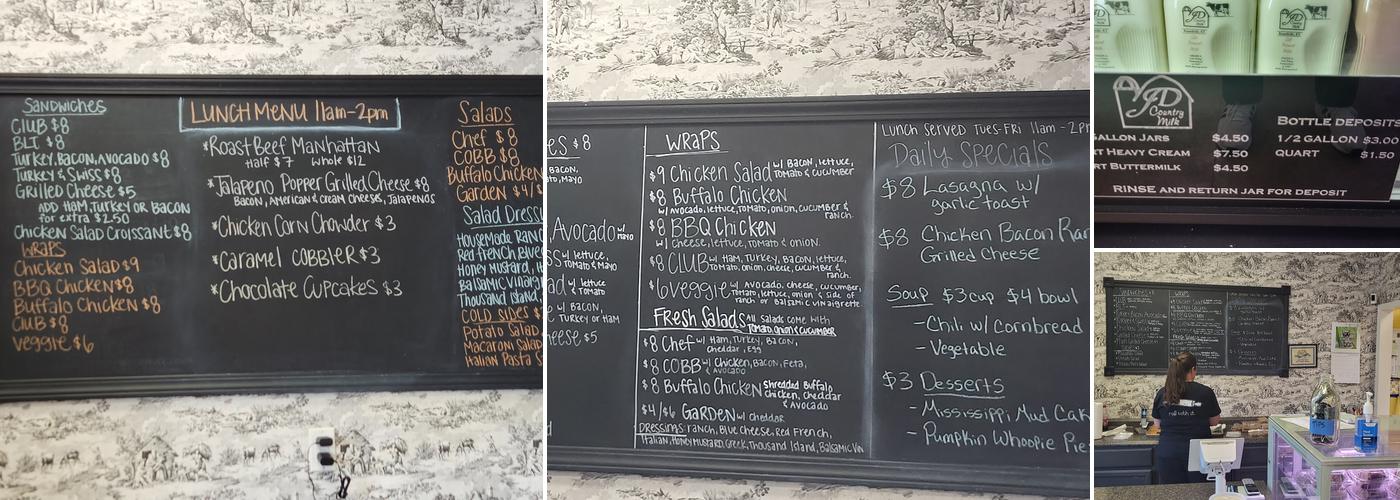 Sandwiches
CLUB $8
BLT $8
Turkey, Bacon, Avocado $8
Turkey & Swiss $8
Grilled Cheese $5
ADD HAM, TURKEY or BACON
for extra $2.50
Chicken Salad Croissant $8
WRAPS
Chicken Salad $9
BBQ Chicken $8
Buffalo Chicken $8
Club $8
Veggie $6
LUNCH MENU 11am-2pm
*Roast Beef Manhattan
Half $7 Whole $12
*Jalapeno Popper Grilled Cheese $8
Bacon, American & cream cheeses, Jalapenos
*Chicken Corn Chowder $3
*Caramel Cobbler $3
*Chocolate Cupcakes $3
Salads
Chef $8
COBB $8
Buffalo Chicken
Garden $4/$
Salad Dress
Housemade Ranc
Red French, Bleu
Honey Mustard, I
Balsamic Vinaig
Thousand Island,
COLD SIDES $
Potato Salad
Macaroni Salad
Italian Pasta S
es $8
BACON,
TO, MAYO
Avocado w/ MAYO
SS w/ lettuce,
TOMATO & MAYO
ad w/ lettuce
& TOMATO
w/ BACON,
TURKEY or HAM
heese $5
WRAPS
$9 Chicken Salad w/ BACON, lettuce,
TOMATO & CUCUMBER
$8 Buffalo Chicken
w/ Avocado, lettuce, TOMATO, onion, cucumber &
ranch.
$8 BBQ Chicken
w/ cheese, lettuce, tomato & onion.
$8 CLUB w/ HAM, Turkey, BACON, lettuce,
TOMATO, onion, cheese, cucumber &
ranch.
$6 Veggie w/ Avocado, cheese, cucumber,
tomato, lettuce, onion & side of
ranch or Balsamic Vinaigrette.
Fresh Salads All Salads come with
TOMATO, ONION & CUCUMBER
$8 Chef w/ HAM, Turkey, BACON,
cheddar, Egg
$8 COBB w/ Chicken, BACON, Feta,
& AVOCADO
$8 Buffalo Chicken Shredded Buffalo
chicken, cheddar
& Avocado
$4/$6 GARDEN w/ cheddar
Dressings: ranch, Blue Cheese, Red French,
Italian, Honey Mustard, Greek, Thousand Island, Balsamic Vin
Lunch Served Tues-Fri 11am-2pm
Daily Specials
$8 Lasagna w/
garlic toast
$8 Chicken Bacon Ran
Grilled Cheese
Soup $3 cup $4 bowl
- Chili w/ Cornbread
- Vegetable
$3 Desserts
- Mississippi Mud Cak
- Pumpkin Whoopie Pie
JD
Country
Milk
GALLON JARS $4.50
RT HEAVY CREAM $7.50
RT BUTTERMILK $4.50
BOTTLE DEPOSITS
1/2 GALLON $3.00
QUART $1.50
RINSE AND RETURN JAR FOR DEPOSIT
roll with it
TIPS